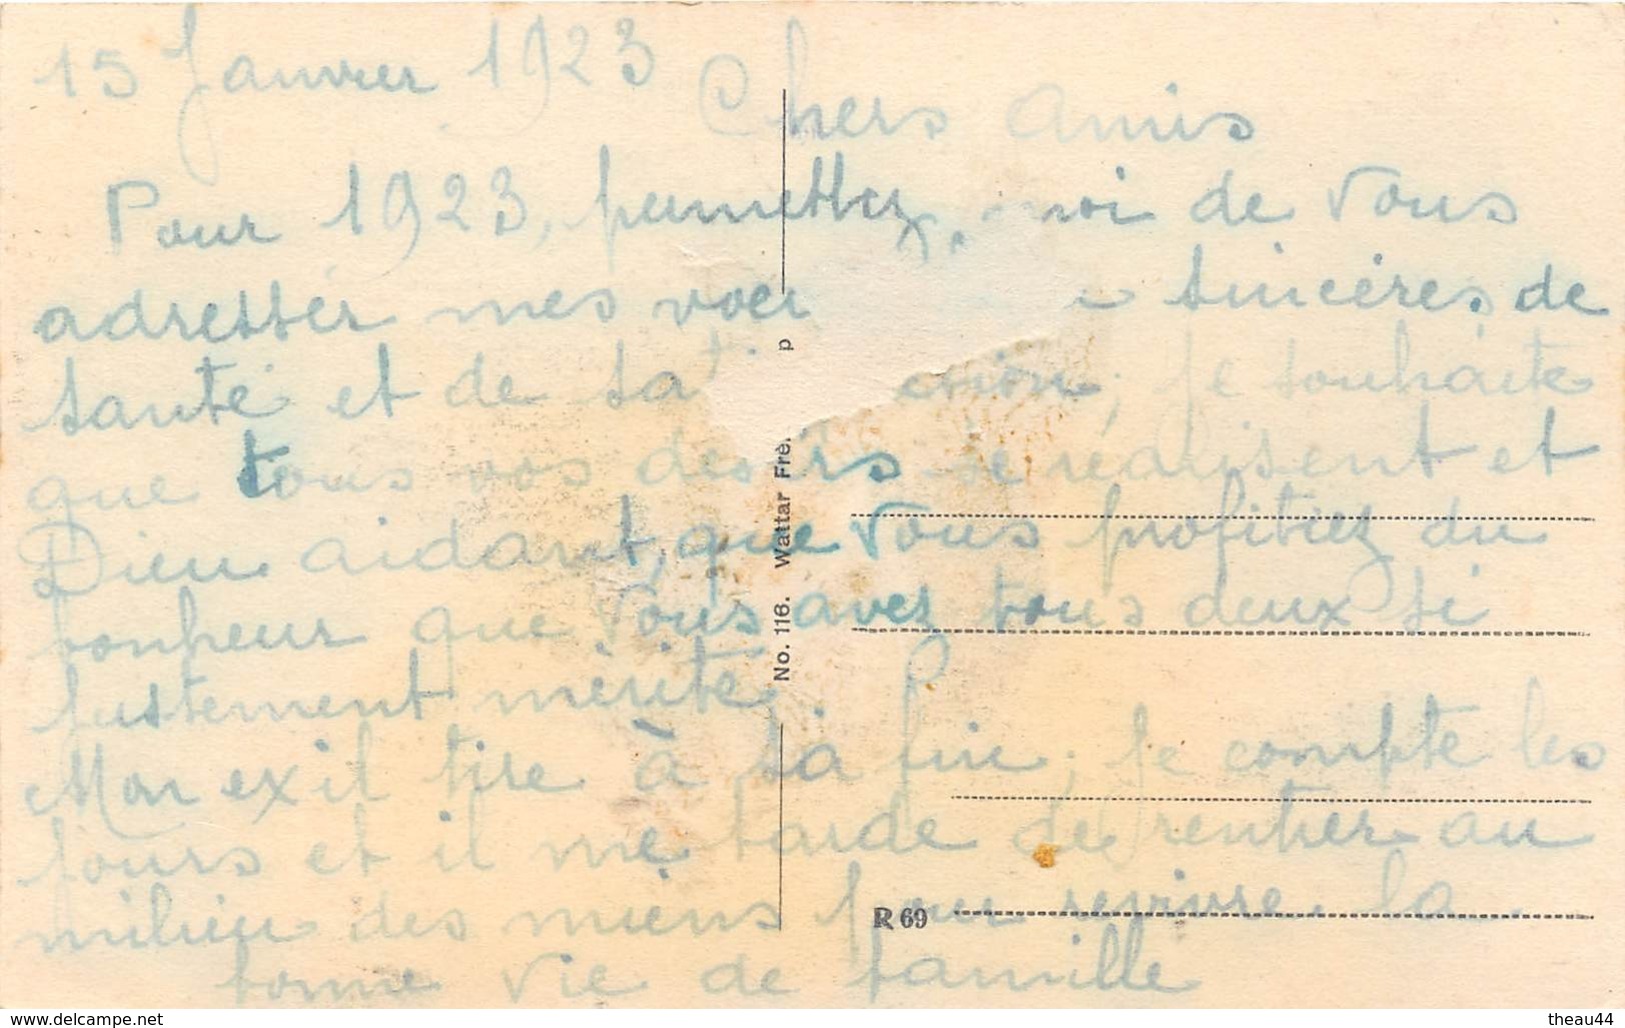 15 Janvier 1923
Chers Amis
Pour 1923, permettez moi de Vous
adresser mes voeu sincères, de
santé et de sa ction ; Je souhaite
que tous vos désirs se réalisent et
Dieu aidant, que Vous profitiez du
bonheur que Vous avez tous deux si
justement mérité.
Mon exil tire à sa fin ; Je compte les
jours et il me tarde de rentrer au
milieu des miens pour revivre la
bonne vie de famille
No. 116. Wattar Frè. p
R 69
www.delcampe.net
theau44